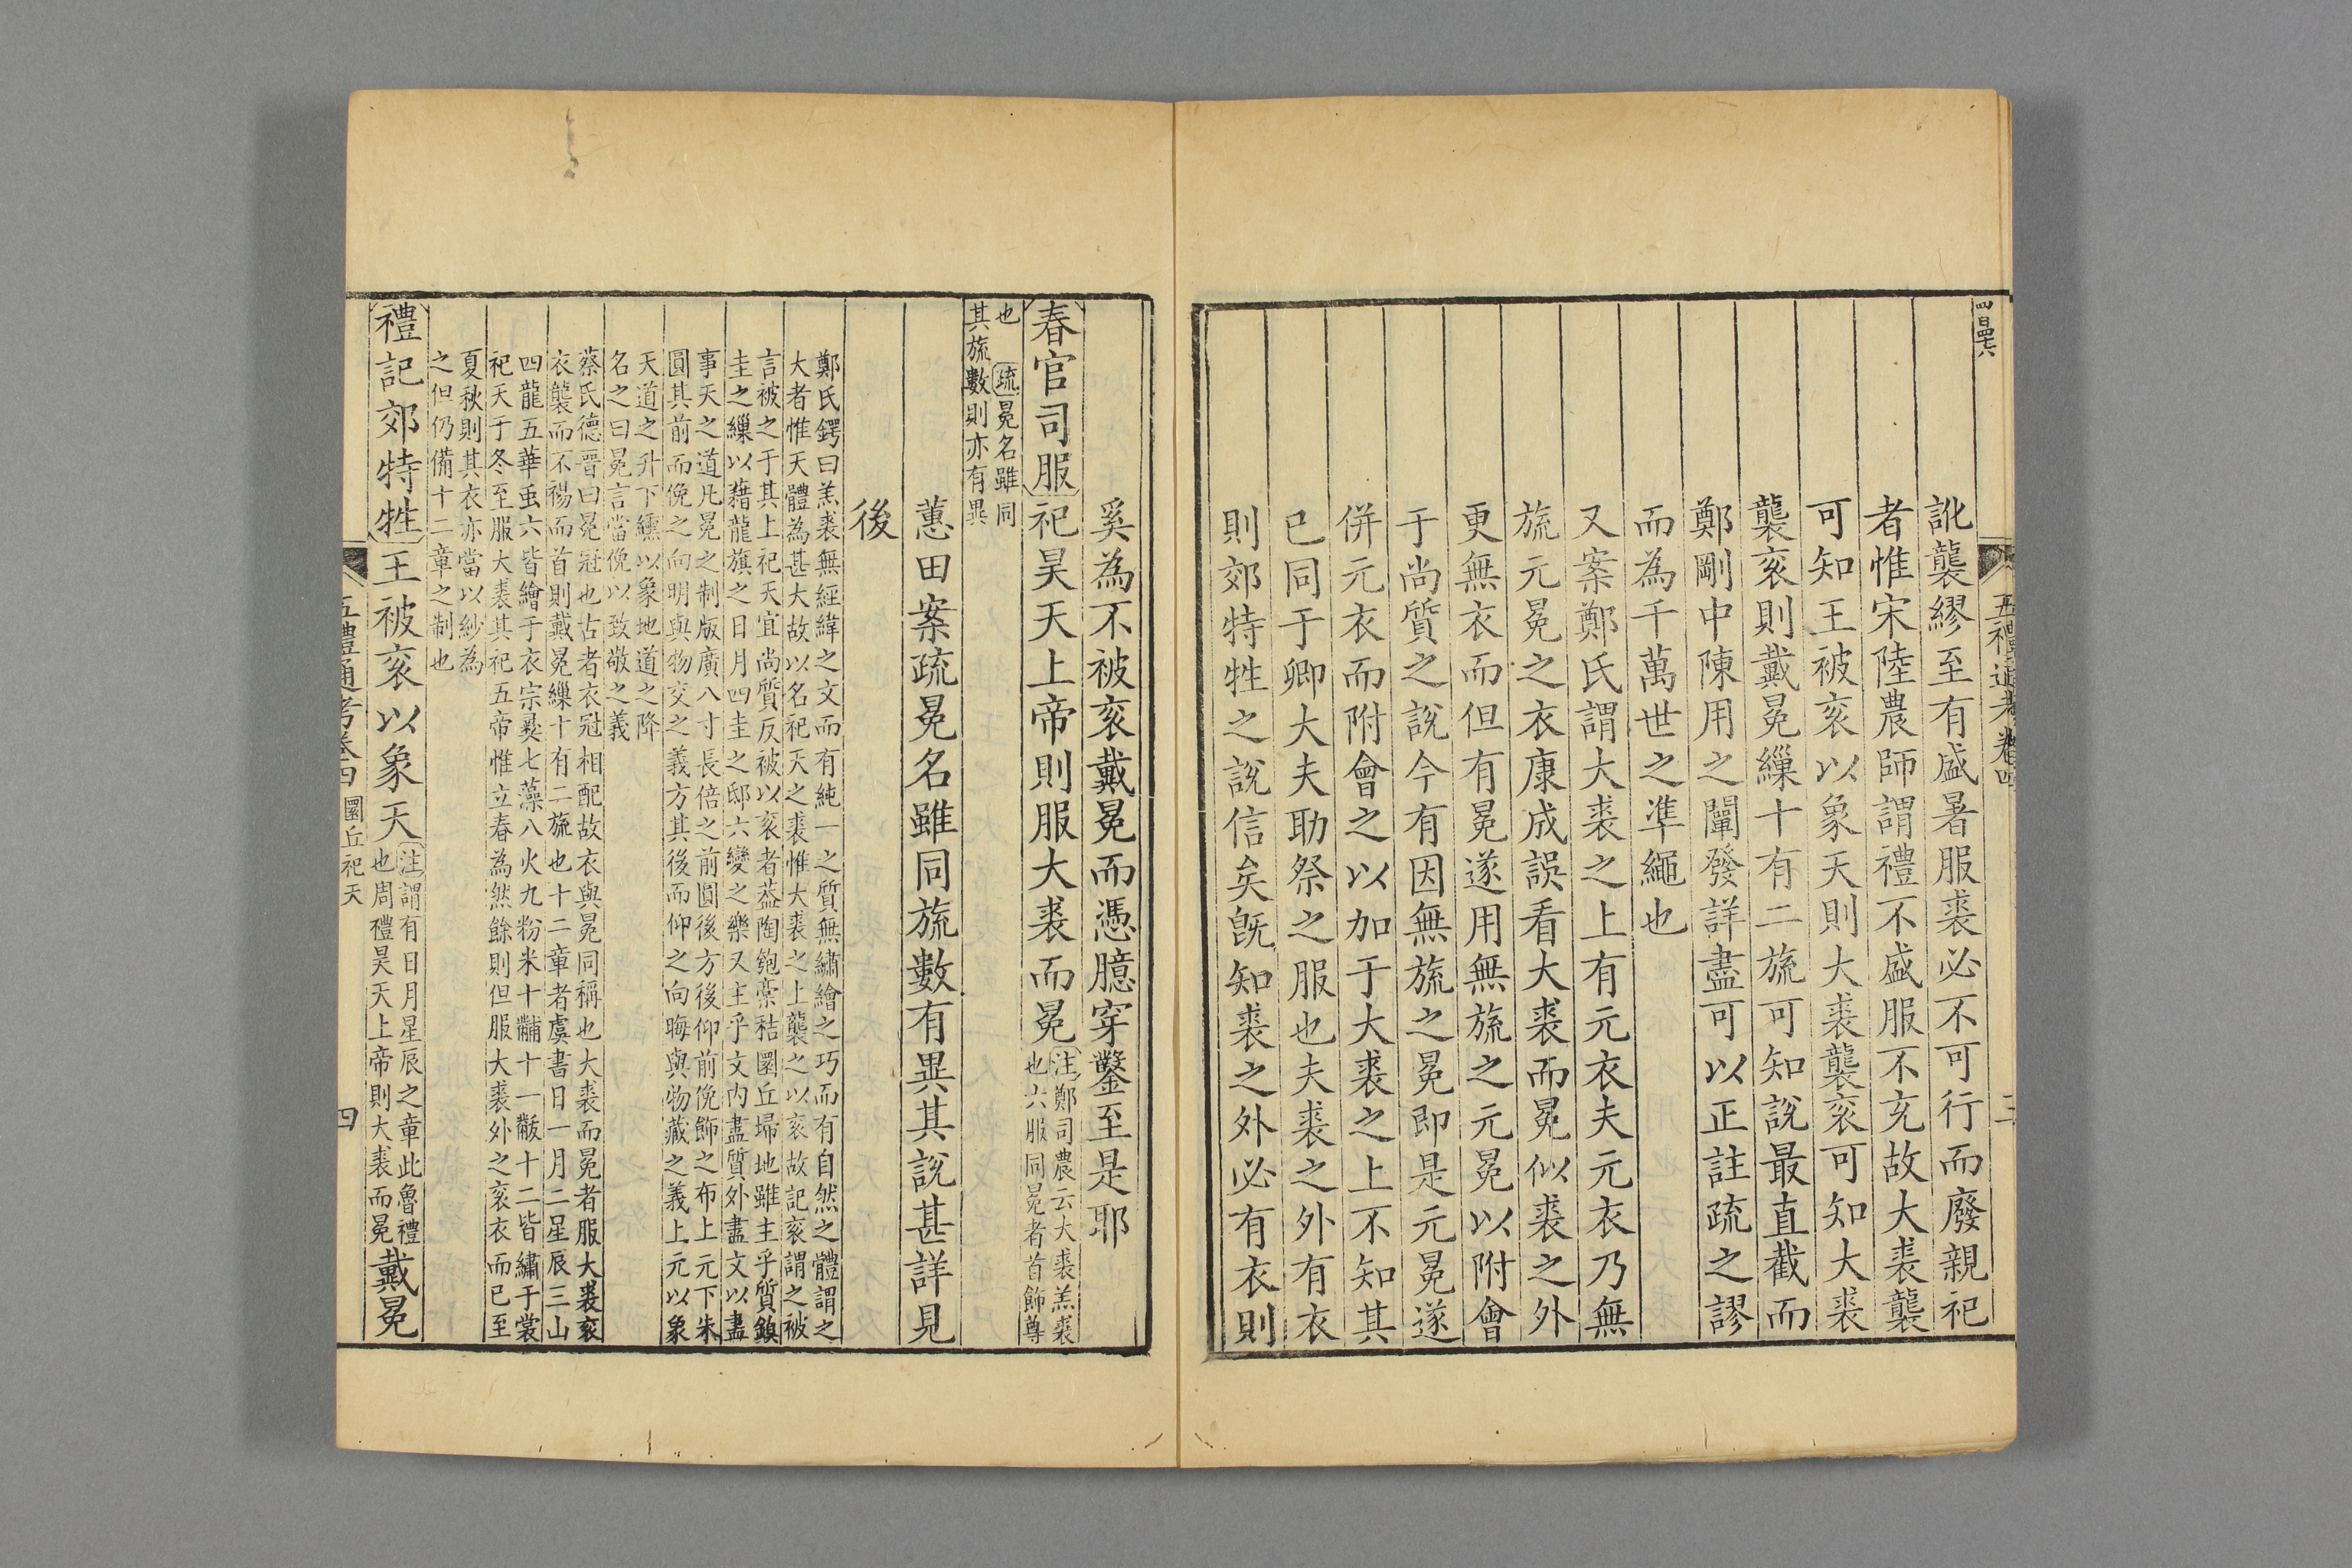 五禮通考卷四
三
訛襲繆至有盛暑服裘必不可行而廢親祀
者惟宋陸農師謂禮不盛服不充故大裘襲
可知王被袞以象天則大裘襲袞可知大裘
襲袞則戴冕繅十有二旒可知說最直截而
鄭剛中陳用之闡發詳盡可以正註疏之謬
而為千萬世之準繩也
又案鄭氏謂大裘之上有元衣夫元衣乃無
旒元冕之衣康成誤看大裘而冕似裘之外
更無衣而但有冕遂用無旒之元冕以附會
于尚質之說今有因無旒之冕即是元冕遂
併元衣而附會之以加于大裘之上不知其
已同于卿大夫助祭之服也夫裘之外有衣
則郊特牲之說信矣旣知裘之外必有衣則
奚為不被袞戴冕而憑臆穿鑿至是耶
春官司服祀昊天上帝則服大裘而冕
注鄭司農云大裘羔裘
也六服同冕者首飾尊
也 疏冕名雖同
其旒數則亦有異
蕙田案疏冕名雖同旒數有異其說甚詳見
後
鄭氏鍔曰羔裘無經緯之文而有純一之質無繡繪之巧而有自然之體謂之
大者惟天體為甚大故以名祀天之裘惟大裘之上襲之以袞故記袞謂之被
言被之于其上祀天宜尚質反被以袞者葢陶匏槀秸圜丘埽地雖主乎質鎮
圭之繅以藉龍旗之日月四圭之邸六變之樂又主乎文内盡質外盡文以盡
事天之道凡冕之制版廣八寸長倍之前圓後方後仰前俛飾之布上元下朱
圓其前而俛之向明與物交之義方其後而仰之向晦與物藏之義上元以象
天道之升下纁以象地道之降
名之曰冕言當俛以致敬之義
蔡氏德晉曰冕冠也古者衣冠相配故衣與冕同稱也大裘而冕者服大裘袞
衣襲而不裼而首則戴冕繅十有二旒也十二章者虞書日一月二星辰三山
四龍五華虫六皆繪于衣宗彞七藻八火九粉米十黼十一黻十二皆繡于裳
祀天于冬至服大裘其祀五帝惟立春為然餘則但服大裘外之袞衣而已至
夏秋則其衣亦當以紗為
之但仍備十二章之制也
禮記郊特牲王被袞以象天
注謂有日月星辰之章此魯禮
也周禮昊天上帝則大裘而冕
戴冕
五禮通考卷四
圜丘祀天
四